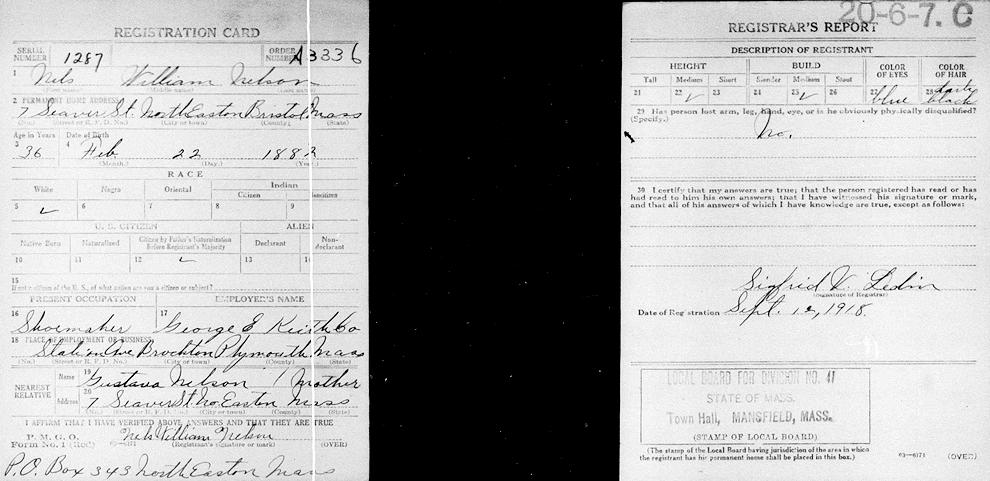 REGISTRATION CARD
SERIAL NUMBER 1287 ORDER NUMBER A3336
1 Nels William Nelson
(First name) (Middle name) (Last name)
2 PERMANENT HOME ADDRESS:
7 Seaver St. North Easton Bristol Mass
(No.) (Street or R. F. D. No.) (City or town) (County) (State)
Age in Years Date of Birth
3 36 4 Feb. 22 1882
(Month.) (Day.) (Year.)
RACE
White Negro Oriental Indian
Citizen Noncitizen
5 ✓ 6 7 8 9
U. S. CITIZEN ALIEN
Native Born Naturalized Citizen by Father's Naturalization Before Registrant's Majority Declarant Non-declarant
10 11 12 ✓ 13 14
15
If not a citizen of the U. S., of what nation are you a citizen or subject?
PRESENT OCCUPATION EMPLOYER'S NAME
16 Shoemaker 17 George E Keith Co
18 PLACE OF EMPLOYMENT OR BUSINESS:
Station Ave Brockton Plymouth Mass
(No.) (Street or R. F. D. No.) (City or town) (County) (State)
NEAREST RELATIVE Name 19 Gustava Nelson / Mother
Address 20 7 Seaver St. No. Easton Mass
(No.) (Street or R. F. D. No.) (City or town) (County) (State)
I AFFIRM THAT I HAVE VERIFIED ABOVE ANSWERS AND THAT THEY ARE TRUE
P. M. G. O.
Form No. 1 (Red) Nels William Nelson
(Registrant's signature or mark) (OVER)
P.O. Box 343 North Easton Mass
20-6-7. C
REGISTRAR'S REPORT
DESCRIPTION OF REGISTRANT
HEIGHT BUILD COLOR OF EYES COLOR OF HAIR
Tall Medium Short Slender Medium Stout
21 22 ✓ 23 24 25 ✓ 26 27 blue 28 dark black
29 Has person lost arm, leg, hand, eye, or is he obviously physically disqualified?
(Specify.) No.
30 I certify that my answers are true; that the person registered has read or has
had read to him his own answers; that I have witnessed his signature or mark,
and that all of his answers of which I have knowledge are true, except as follows:
Sigfrid V. Ledin
(Signature of Registrar)
Date of Registration Sept. 12, 1918.
LOCAL BOARD FOR DIVISION NO. 41
STATE OF MASS.
Town Hall, MANSFIELD, MASS.
(STAMP OF LOCAL BOARD)
(The stamp of the Local Board having jurisdiction of the area in which
the registrant has his permanent home shall be placed in this box.)
03—6171 (OVER)